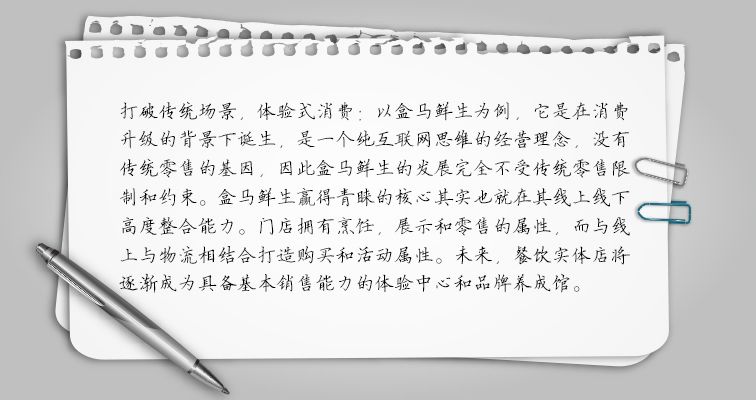 打破传统场景，体验式消费：以盒马鲜生为例，它是在消费
升级的背景下诞生，是一个纯互联网思维的经营理念，没有
传统零售的基因，因此盒马鲜生的发展完全不受传统零售限
制和约束。盒马鲜生赢得青睐的核心其实也就在其线上线下
高度整合能力。门店拥有烹饪，展示和零售的属性，而与线
上与物流相结合打造购买和活动属性。未来，餐饮实体店将
逐渐成为具备基本销售能力的体验中心和品牌养成馆。